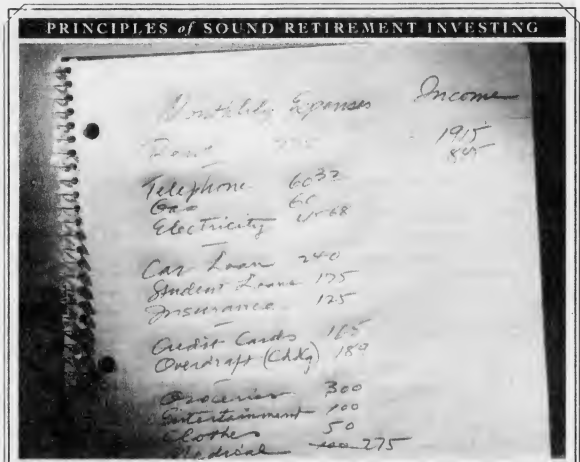 PRINCIPLES of SOUND RETIREMENT INVESTING
Monthly Expenses Income
Rent 775 1915
845
Telephone 60 32
Gas 60
Electricity 68
Car Loan 240
Student Loans 175
Insurance 125
Credit Cards 165
Overdraft (Chkg) 180
Groceries 300
Entertainment 100
Clothes 50
Medical 275